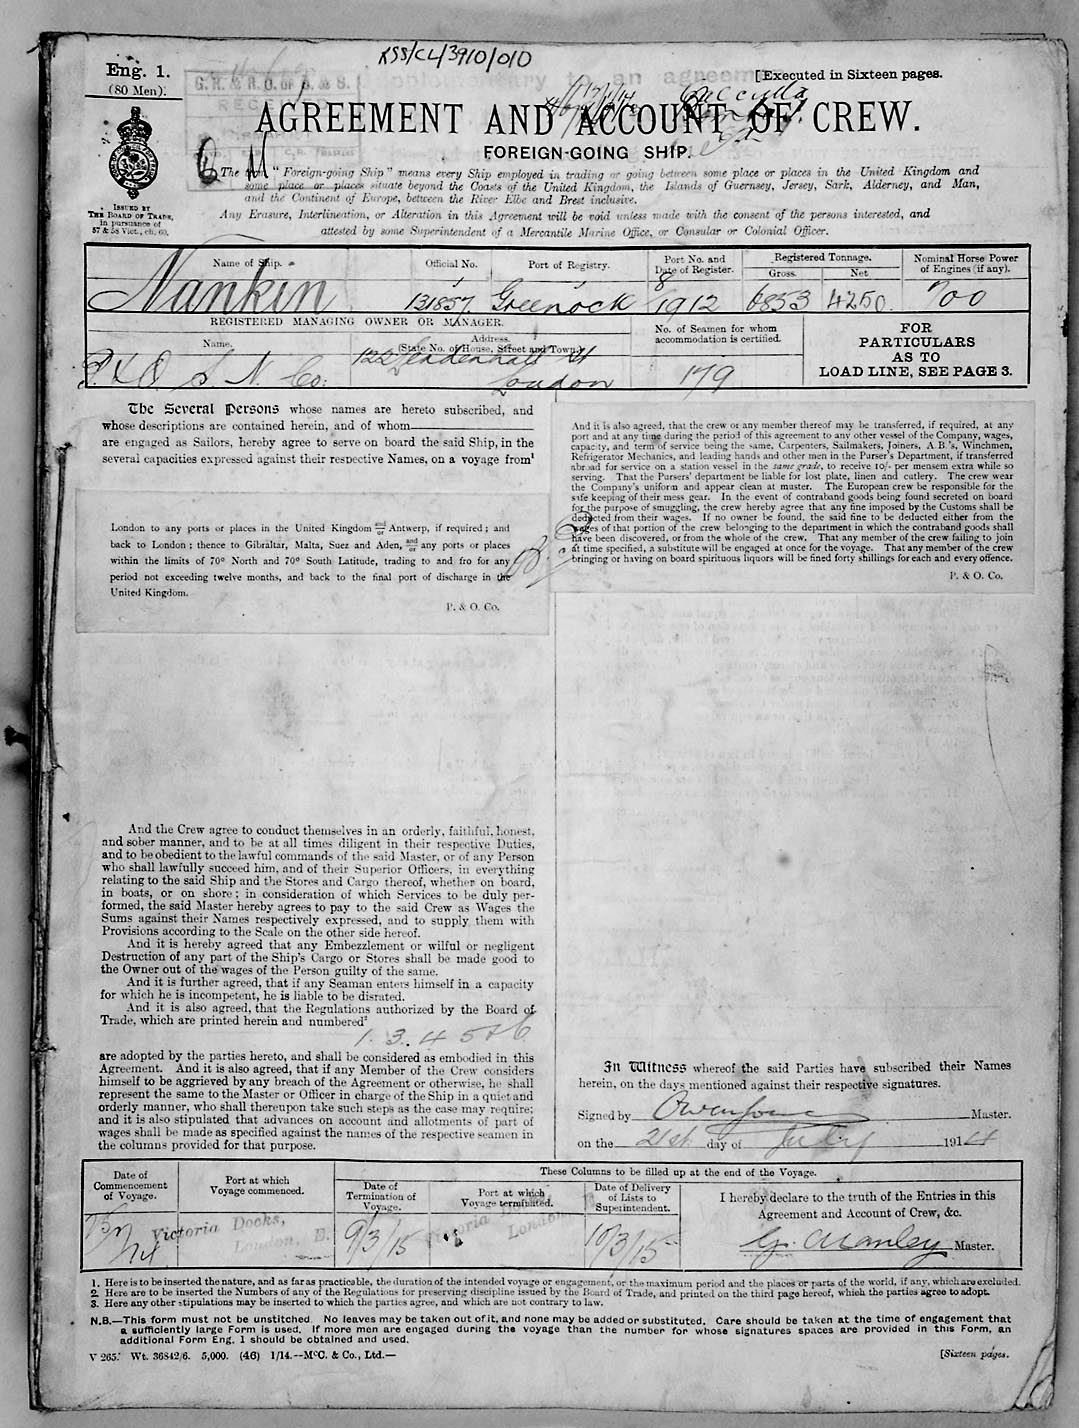 RSS/CL/3910/010
Eng. 1.
(80 Men).
[Executed in Sixteen pages.
AGREEMENT AND ACCOUNT OF CREW.
FOREIGN-GOING SHIP.
ISSUED BY
THE BOARD OF TRADE,
in pursuance of
57 & 58 Vict., ch. 60.
The term "Foreign-going Ship" means every Ship employed in trading or going between some place or places in the United Kingdom and
some place or places situate beyond the Coasts of the United Kingdom, the Islands of Guernsey, Jersey, Sark, Alderney, and Man,
and the Continent of Europe, between the River Elbe and Brest inclusive.
Any Erasure, Interlineation, or Alteration in this Agreement will be void unless made with the consent of the persons interested, and
attested by some Superintendent of a Mercantile Marine Office, or Consular or Colonial Officer.
Name of Ship. Official No. Port of Registry. Port No. and Date of Register. Registered Tonnage. Gross. Net Nominal Horse Power of Engines (if any).
Nankin 131857. Greenock 8 1912 6853 4250. 700
REGISTERED MANAGING OWNER OR MANAGER.
Name. Address. (State No. of House, Street and Town.)
No. of Seamen for whom accommodation is certified.
P. & O. S. N. Co: 122 Leadenhall St London
179
FOR
PARTICULARS
AS TO
LOAD LINE, SEE PAGE 3.
The Several Persons whose names are hereto subscribed, and
whose descriptions are contained herein, and of whom
are engaged as Sailors, hereby agree to serve on board the said Ship, in the
several capacities expressed against their respective Names, on a voyage from¹
London to any ports or places in the United Kingdom and/or Antwerp, if required; and
back to London; thence to Gibraltar, Malta, Suez and Aden, and/or any ports or places
within the limits of 70° North and 70° South Latitude, trading to and fro for any
period not exceeding twelve months, and back to the final port of discharge in the
United Kingdom.
P. & O. Co.
And it is also agreed, that the crew or any member thereof may be transferred, if required, at any
port and at any time during the period of this agreement to any other vessel of the Company, wages,
capacity, and term of service being the same, Carpenters, Sailmakers, Joiners, A B 's, Winchmen,
Refrigerator Mechanics, and leading hands and other men in the Purser's Department, if transferred
abroad for service on a station vessel in the same grade, to receive 10/- per mensem extra while so
serving. That the Pursers' department be liable for lost plate, linen and cutlery. The crew wear
the Company's uniform and appear clean at muster. The European crew be responsible for the
safe keeping of their mess gear. In the event of contraband goods being found secreted on board
for the purpose of smuggling, the crew hereby agree that any fine imposed by the Customs shall be
deducted from their wages. If no owner be found, the said fine to be deducted either from the
wages of that portion of the crew belonging to the department in which the contraband goods shall
have been discovered, or from the whole of the crew. That any member of the crew failing to join
at time specified, a substitute will be engaged at once for the voyage. That any member of the crew
bringing or having on board spirituous liquors will be fined forty shillings for each and every offence.
P. & O. Co.
And the Crew agree to conduct themselves in an orderly, faithful, honest,
and sober manner, and to be at all times diligent in their respective Duties,
and to be obedient to the lawful commands of the said Master, or of any Person
who shall lawfully succeed him, and of their Superior Officers, in everything
relating to the said Ship and the Stores and Cargo thereof, whether on board,
in boats, or on shore; in consideration of which Services to be duly per-
formed, the said Master hereby agrees to pay to the said Crew as Wages the
Sums against their Names respectively expressed, and to supply them with
Provisions according to the Scale on the other side hereof.
And it is hereby agreed that any Embezzlement or wilful or negligent
Destruction of any part of the Ship's Cargo or Stores shall be made good to
the Owner out of the wages of the Person guilty of the same.
And it is further agreed, that if any Seaman enters himself in a capacity
for which he is incompetent, he is liable to be disrated.
And it is also agreed, that the Regulations authorized by the Board of
Trade, which are printed herein and numbered²
1. 3. 4 5 & 6
are adopted by the parties hereto, and shall be considered as embodied in this
Agreement. And it is also agreed, that if any Member of the Crew considers
himself to be aggrieved by any breach of the Agreement or otherwise, he shall
represent the same to the Master or Officer in charge of the Ship in a quiet and
orderly manner, who shall thereupon take such steps as the case may require;
and it is also stipulated that advances on account and allotments of part of
wages shall be made as specified against the names of the respective seamen in
the columns provided for that purpose.
In Witness whereof the said Parties have subscribed their Names
herein, on the days mentioned against their respective signatures.
Signed by Owen Jones Master.
on the 21st day of July 1914
These Columns to be filled up at the end of the Voyage.
Date of Commencement of Voyage. Port at which Voyage commenced. Date of Termination of Voyage. Port at which Voyage terminated. Date of Delivery of Lists to Superintendent.
I hereby declare to the truth of the Entries in this
Agreement and Account of Crew, &c.
Victoria Docks, London, E. 9/3/15 Victoria London 10/3/15
G. Manley Master.
1. Here is to be inserted the nature, and as far as practicable, the duration of the intended voyage or engagement, or the maximum period and the places or parts of the world, if any, which are excluded.
2. Here are to be inserted the Numbers of any of the Regulations for preserving discipline issued by the Board of Trade, and printed on the third page hereof, which the parties agree to adopt.
3. Here any other stipulations may be inserted to which the parties agree, and which are not contrary to law.
N.B.—This form must not be unstitched. No leaves may be taken out of it, and none may be added or substituted. Care should be taken at the time of engagement that
a sufficiently large Form is used. If more men are engaged during the voyage than the number for whose signatures spaces are provided in this Form, an
additional Form Eng. 1 should be obtained and used.
V 265. Wt. 36842/6. 5,000. (46) 1/14.--McC. & Co., Ltd.—
[Sixteen pages.